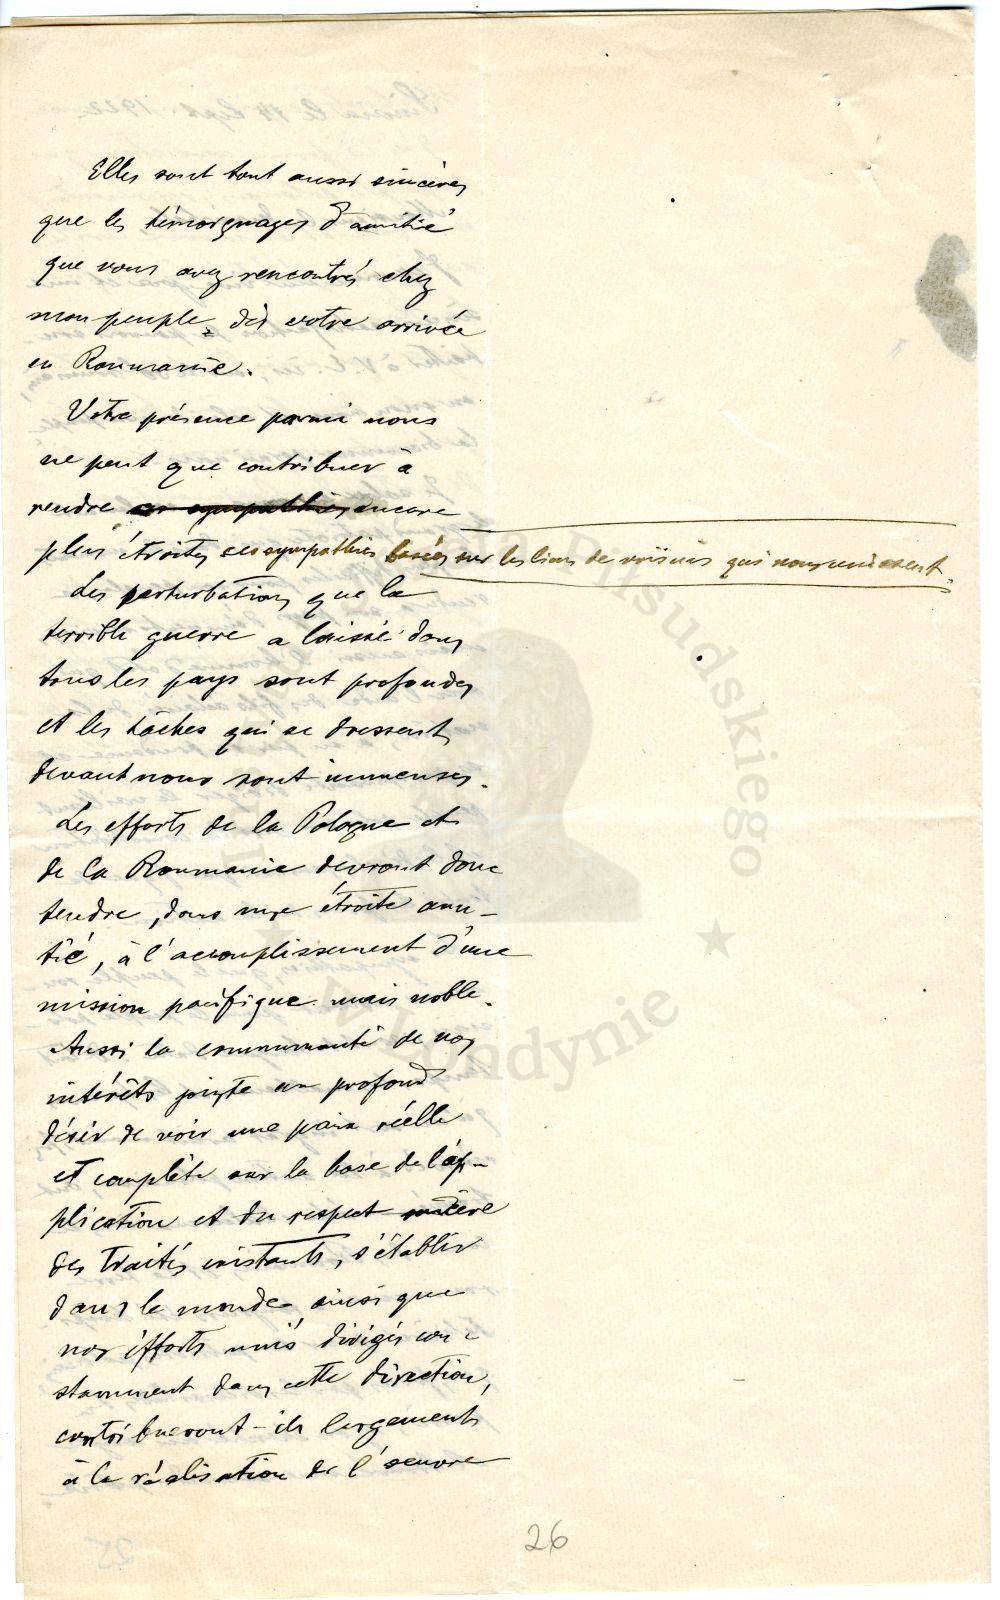 Elles sont tout aussi sincères
que les témoignages d'amitié
que vous avez rencontrés chez
mon peuple, dès votre arrivée
en Roumanie.
Votre présence parmi nous
ne peut que contribuer à
rendre ces sympathies encore
plus étroites ces sympathies basées sur les liens de voisins qui nous unissent.
Les perturbations que la
terrible guerre a laissé dans
tous les pays sont profondes
et les tâches qui se dressent
devant nous sont immenses.
Les efforts de la Pologne et
de la Roumanie devront donc
tendre, dans une étroite ami-
tié, à l'accomplissement d'une
mission pacifique mais noble.
Aussi la communauté de nos
intérêts jointe au profond
désir de voir une paix réelle
et complète sur la base de l'ap-
plication et du respect sincère
des traités existants, s'établir
dans le monde ainsi que
nos efforts unis dirigés con-
stamment dans cette direction,
contribueront-ils largement
à la réalisation de l'oeuvre
26
Piłsudskiego
w Londynie